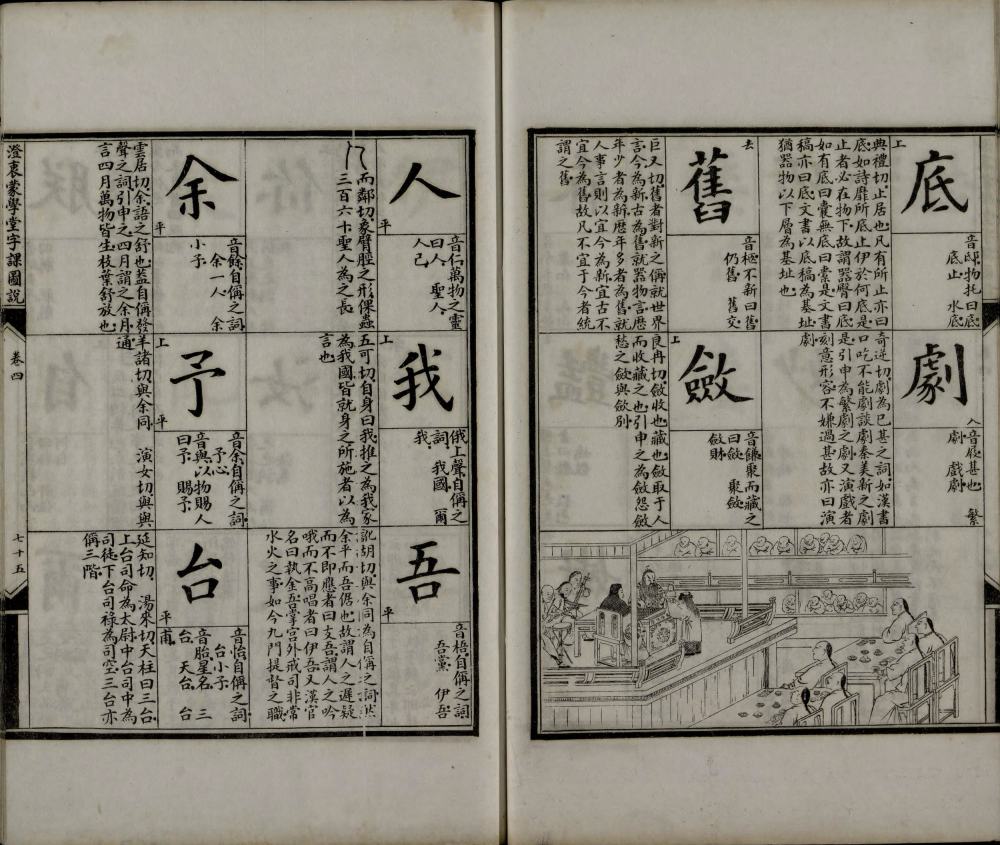 底
上
音邸物托曰底
底止　水底
典禮切止居也凡有所止亦曰
底如詩靡所底止伊於何底是
止者必在物下故謂器臀曰底
如有底曰囊無底曰橐是文書
稿亦曰底文書以底稿為基址
猶器物以下層為基址也
舊
去
音柩不新曰舊
仍舊　舊交
巨又切舊者對新之稱就世界
言今為新古為舊就器物言歷
年少者為新歷年多者為舊就
人事言則以宜今為新宜古不
宜今為舊故凡不宜于今者統
謂之舊
劇
入
音屐甚也　繁
劇　戲劇
奇逆切劇為已甚之詞如漢書
口吃不能劇談劇秦美新之劇
是引申為繁劇之劇又演戲者
刻意形容不嫌過甚故亦曰演
劇
斂
上
音鐮聚而藏之
曰斂　聚斂
斂財
良冉切斂收也藏也斂取于人
而收藏之也引申之為斂怨斂
愁之斂與歛別
人
平
音仁萬物之靈
曰人　聖人
人己
而鄰切象臂脛之形倮蟲
三百六十聖人為之長
我
上
俄上聲自稱之
詞　我國　爾
我
五可切自身曰我推之為我家
為我國皆就身之所施者以為
言也
吾
平
音梧自稱之詞
吾黨　伊吾
訛胡切與余同為自稱之詞然
余平而吾倨也故謂人之遲疑
而不即應者曰支吾謂人之吟
哦而不高唱者曰伊吾又漢官
名曰執金吾掌宮外戒司非常
水火之事如今九門提督之職
余
平
音餘自稱之詞
余一人　余
小子
雲居切余語之舒也蓋自稱發
聲之詞引申之四月謂之余月
言四月萬物皆生枝葉舒放也
予
上
平
音余自稱之詞
予心
音與以物賜人
曰予　賜予
羊諸切與余同　演女切與與
通
台
平
音怡自稱之詞
台小子
音胎星名　三
台　天台　台
甫
延知切　湯來切天柱曰三台
上台司命為太尉中台司中為
司徒下台司祿為司空三台亦
稱三階
澄衷蒙學堂字課圖說
卷四
七十五